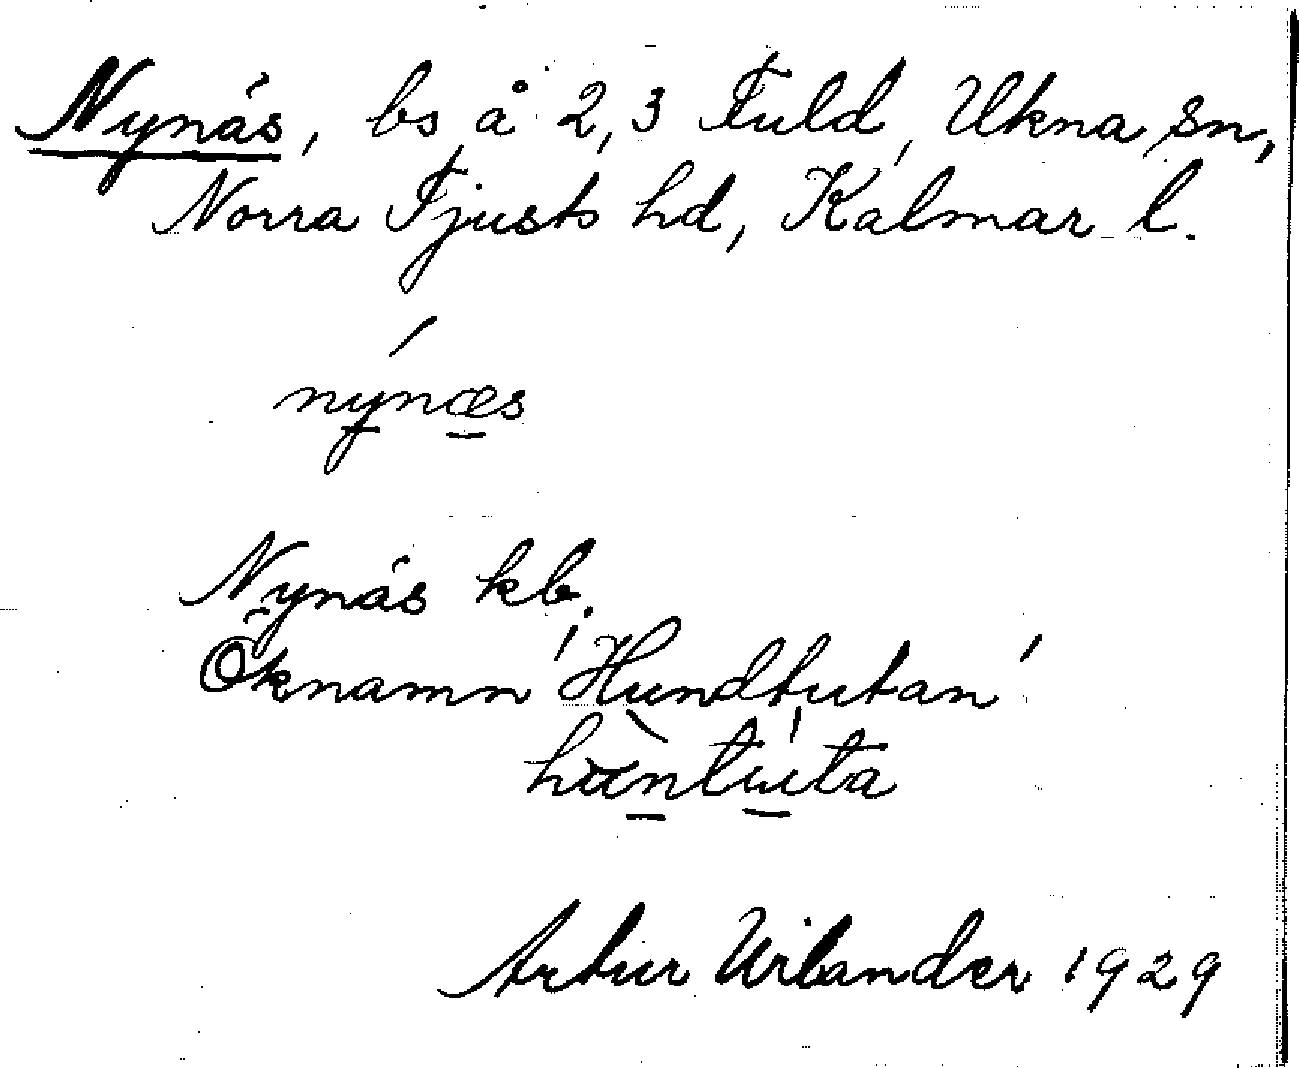 Nynäs, bs å 2,3 Fuld, Ukna sn,
Norra Tjusts hd, Kalmar l.
nýnæs
Nynäs kb.
Öknamn 'Hundtutan'
hùntúta
Artur Wilander 1929